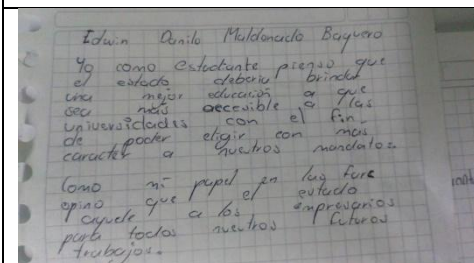 Edwin Danilo Maldonado Baquero
Yo como estudiante pienso que
el estado deberia brindar
una mejor educación a que
sea más accesible a las
universidades con el fin
de poder eligir con mas
caracter a nuestros mandatos
Como mi papel en las farc
opino que el estado
ayude a los empresarios
para todos nuestros futuros
trabajos.